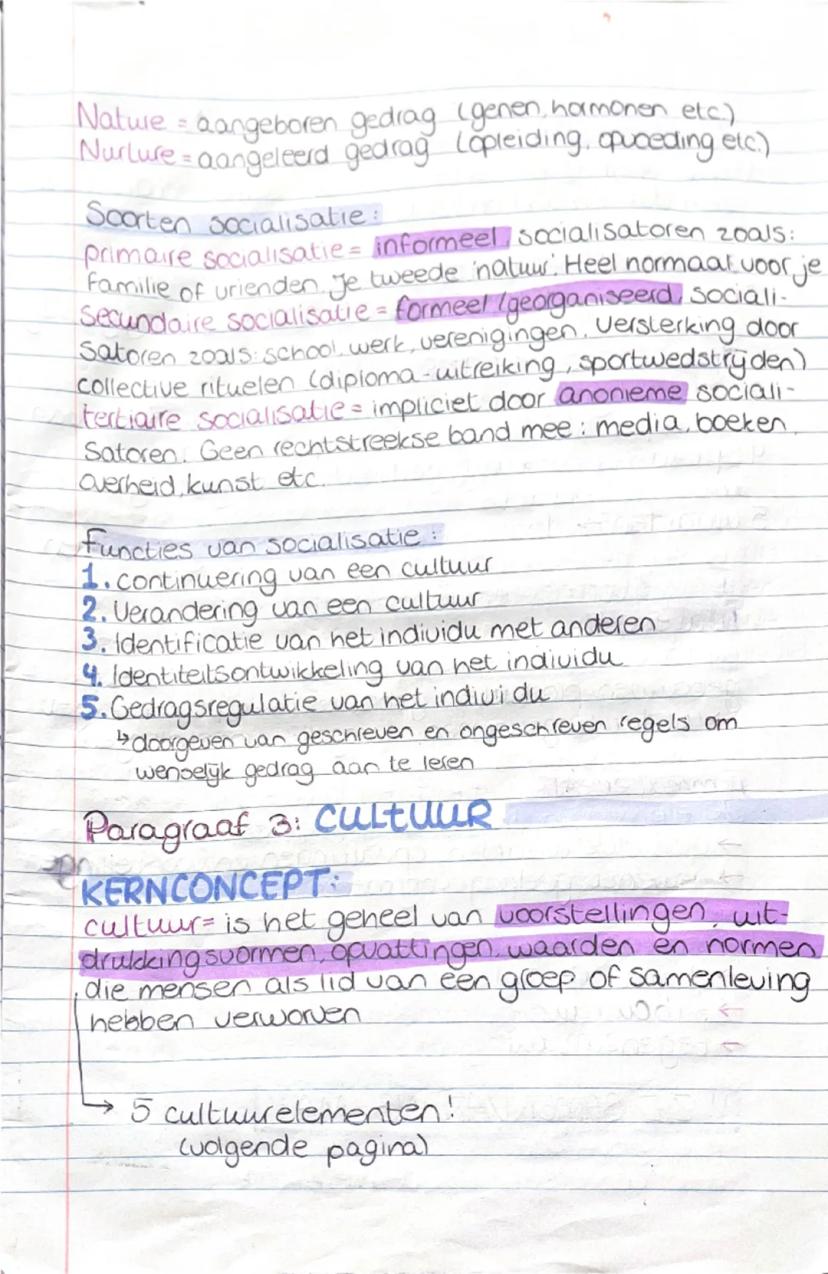 Nature = aangeboren gedrag (genen, hormonen etc.)
Nurture = aangeleerd gedrag (opleiding, opvoeding etc.)
Soorten socialisatie:
primaire socialisatie = informeel, socialisatoren zoals:
familie of vrienden. Je tweede 'natuur'. Heel normaal voor je
Secundaire socialisatie = formeel/georganiseerd, sociali-
satoren zoals: school, werk, verenigingen. Versterking door
collective rituelen (diploma-uitreiking, sportwedstrijden)
tertiaire socialisatie = impliciet door anonieme sociali-
satoren. Geen rechtstreekse band mee: media, boeken,
overheid, kunst etc.
Functies van socialisatie:
1. continuering van een cultuur
2. Verandering van een cultuur
3. Identificatie van het individu met anderen
4. Identiteitsontwikkeling van het individu
5. Gedragsregulatie van het individu
↳ doorgeven van geschreven en ongeschreven regels om
wenselijk gedrag aan te leren
Paragraaf 3: CULTUUR
KERNCONCEPT:
cultuur = is het geheel van voorstellingen, uit-
drukkingsvormen, opvattingen, waarden en normen
die mensen als lid van een groep of samenleving
hebben verworven
→ 5 cultuurelementen!
(volgende pagina)